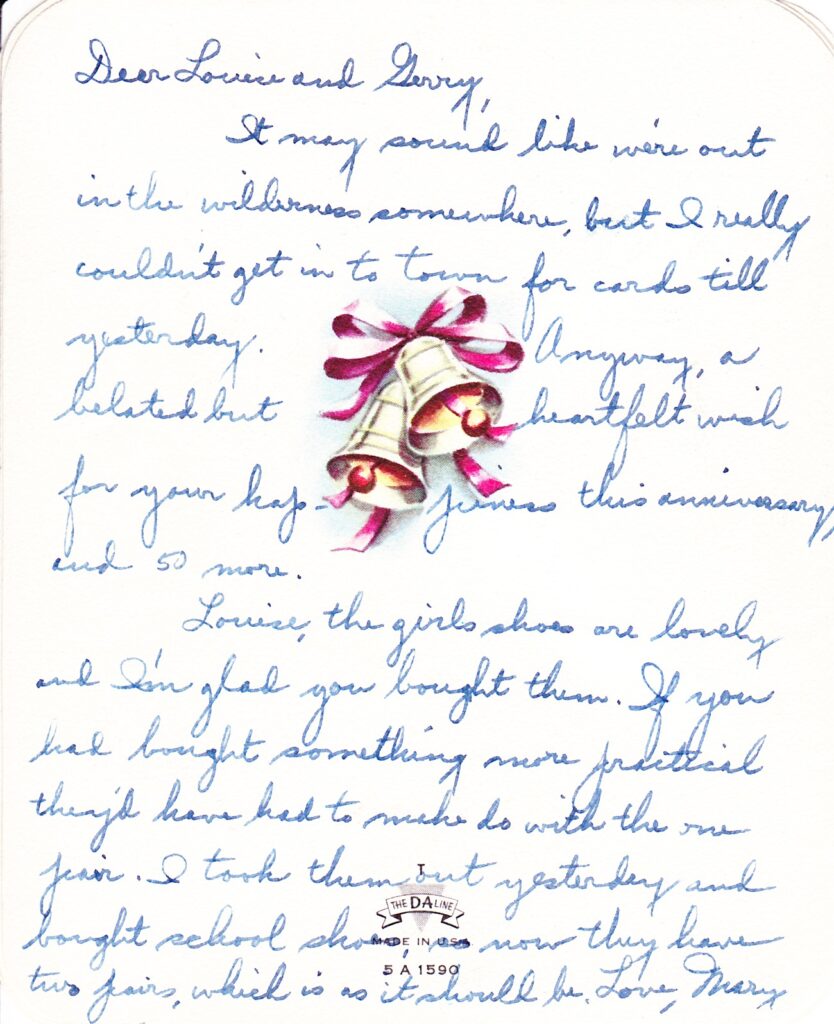 Dear Louise and Gerry,
It may sound like we're out
in the wilderness somewhere, but I really
couldn't get in to town for cards till
yesterday. Anyway, a
belated but heartfelt wish
for your hap- piness this anniversary,
and 50 more.
Louise, the girls shoes are lovely
and I'm glad you bought them. If you
had bought something more practical
they'd have had to make do with the one
pair. I took them out yesterday and
T
THE DALINE
bought school shoes, so now they have
MADE IN U.S.A.
5 A 1590
two pairs, which is as it should be. Love, Mary